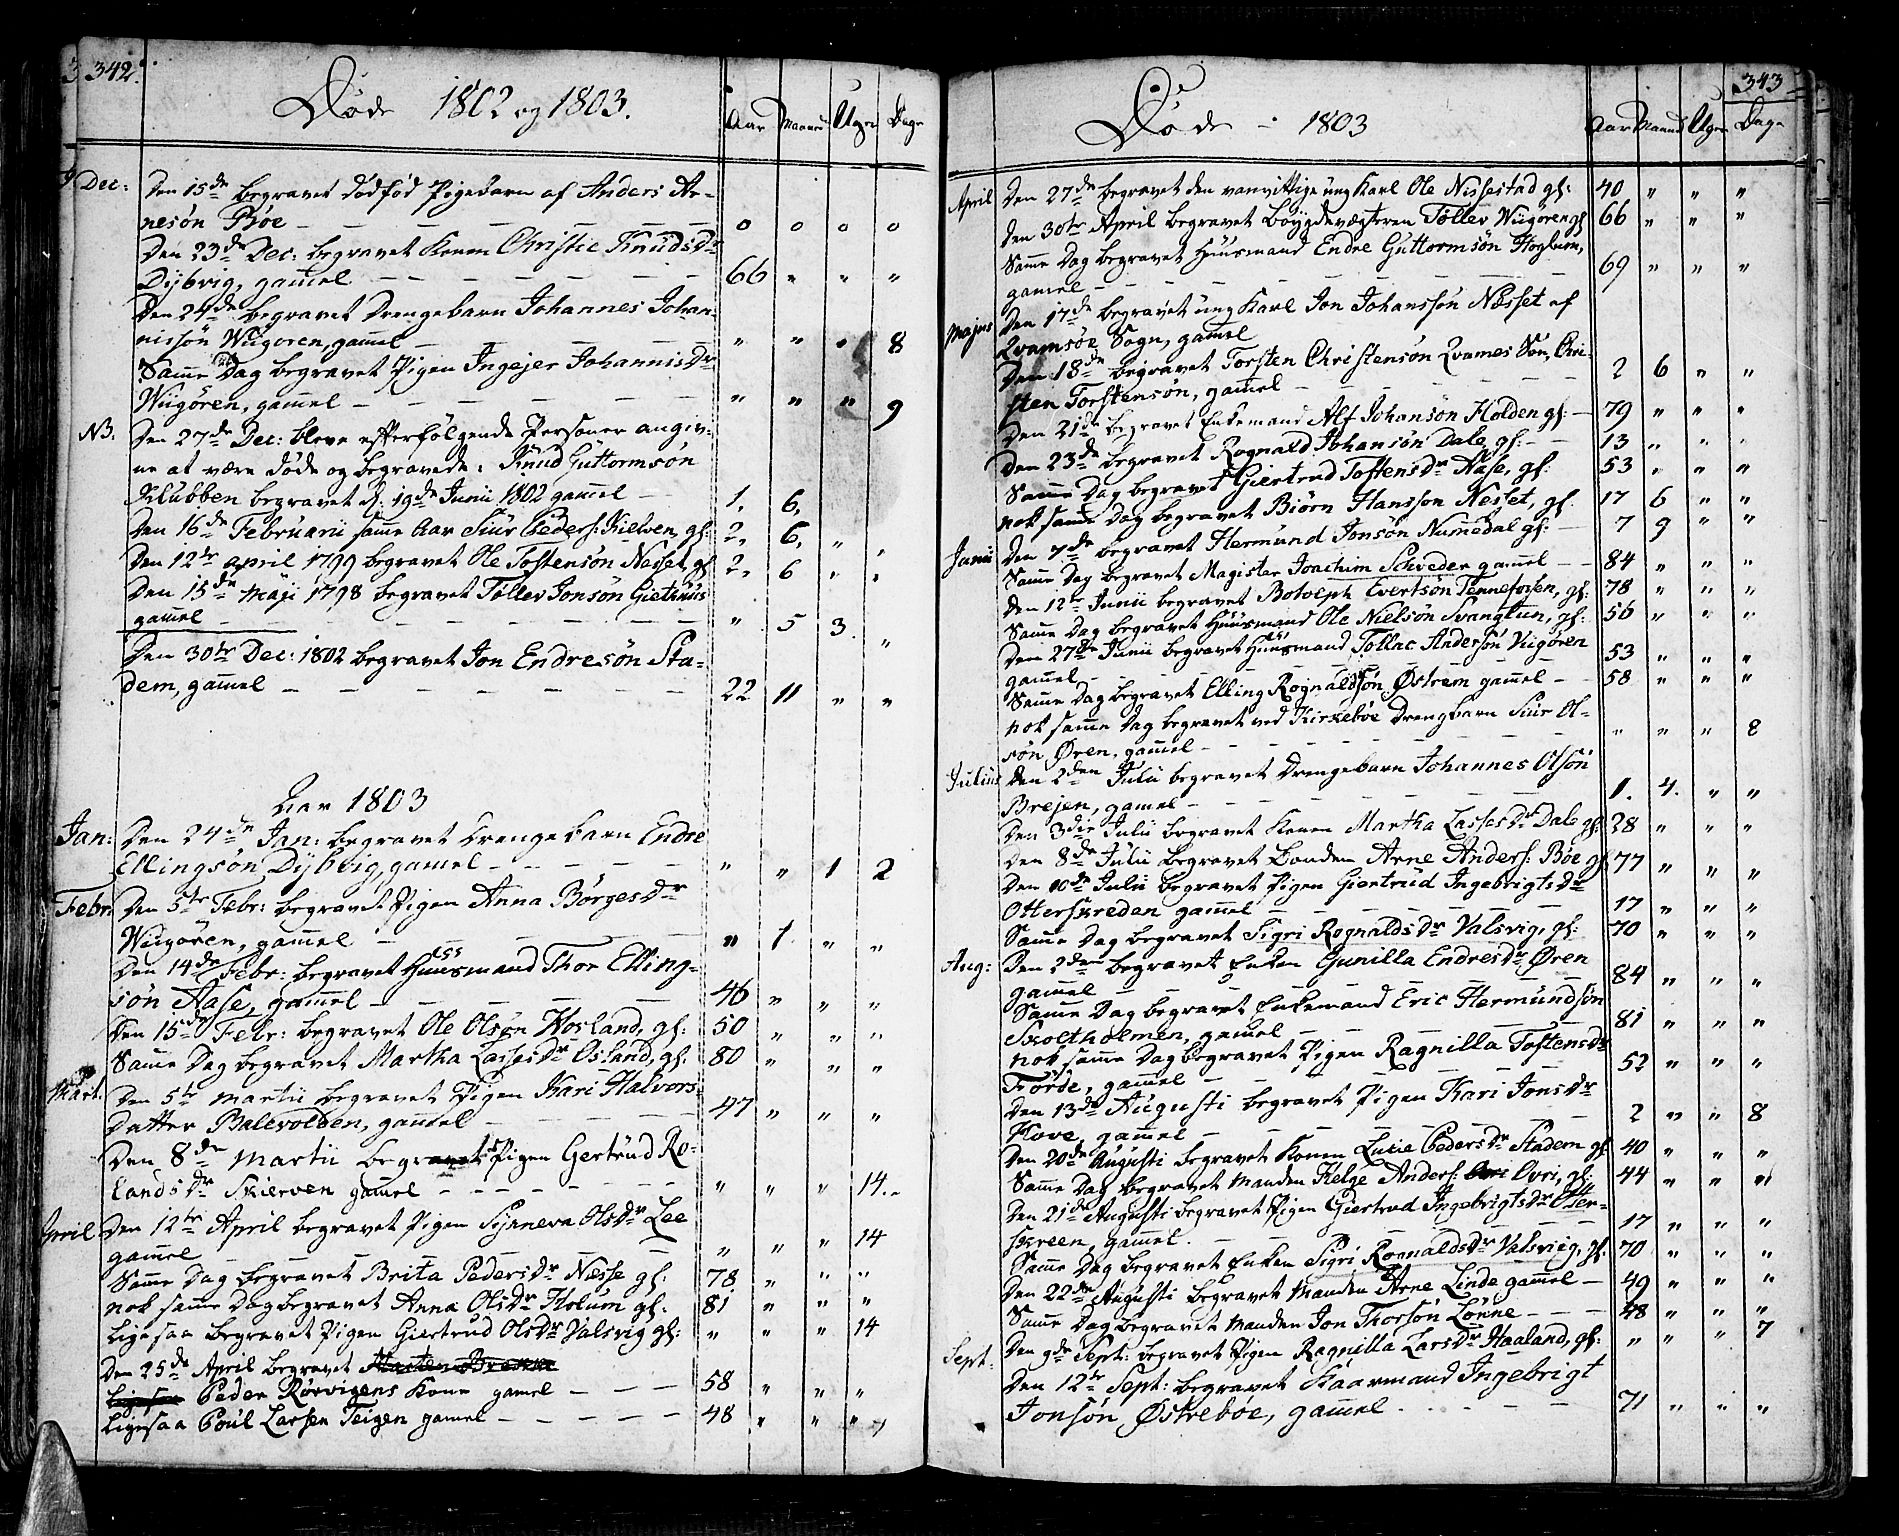 342.
Døde 1802 og 1803.
Aar Maaner Uger Dage
Dec: Den 15de begravet dødfød Pigebarn af Anders Ar-
nesøn Bøe — 0 0 0 0
Den 23de Dec: begravet Konen Christie Knudsdr
Dybvig, gamel — 66 " " "
Den 24de begravet Drengebarn Johannes Johan-
nissøn Wiigøren, gamel — " " " 8
Samme Dag begravet Pigen Ingejer Johannisdr
Wiigøren, gamel — " " " 9
NB. Den 27de Dec: bleve efterfølgende Personer angiv-
ne at være døde og begravede: Knud Guttormsøn
Klubben begravet d: 19de Junii 1802 gamel — 1. 6.
Den 16de Februarii samme Aar Siur Peders: Kielven, gl: 2. 6. " "
Den 12te april 1799 begravet Ole Tostensøn Nesset, gl 2. 6 " "
Den 15de Maji 1798 begravet Tollev Jonsøn Gietmus
gamel — " 5 3 "
Den 30te Dec: 1802 begravet Jon Endresøn Sta-
dem, gamel — 22 11 " "
Aar 1803
Jan: Den 24de Jan: begravet Drengebarn Endre
Ellingsøn Dybvig, gamel — " " 1 2
Febr. Den 5te Febr: begravet Pigen Anna Børgesdr
Wiigøren, gamel — " 1 " "
Den 14de Febr: begravet Huusmand Thor Elling-
søn Aase, gamel — 46 " " "
Den 15de Febr: begravet Ole Olsøn Hosland, gl: 50 " " "
Samme Dag begravet Martha Lassesdr Osland, gl. 80 " " "
Mart. Den 5te Martii begravet Pigen Kari Halvors-
datter Balevolden, gamel — 47 " " "
Den 8de Martii begravet Pigen Gertrud Ro-
landsdr Skierven gamel — " " " 14.
April Den 12te April begravet Pigen Synneva Olsdr Lee
gamel — " " " 14
Samme Dag begravet Brita Pedersdr Nesse gl: 78 " " "
nok samme Dag begravet Anna Olsdr Holum gl: 81 " " "
Ligesaa begravet Pigen Giertrud Olsdr Valsvig gl: " " " 14
Den 25de April begravet
Peder Rørvigens Kone gamel — 58 " " "
Ligesaa Poul Larsen Teigen gamel — 48 " " "
343
Døde - 1803
Aar Maaned Uger Dage
April Den 27de begravet den vanvittige ung Karl Ole Nissestad gl: 40 " " "
Den 30te April begravet Bøygdevægteren Tollev Wiigøren gl 66 " " "
Samme Dag begravet Huusmand Endre Guttormsøn Hoglum,
gamel — 69 " " "
Majus Den 17de begravet ung Karl Jon Johanssøn Næsset af
Qvamsøe Sogn, gamel
Den 18de begravet Torsten Christensøn Qvames Søn, Chri-
sten Torstensøn, gamel — 2 6 " "
Den 21de begravet Enkemand Alf Johansøn Holden gl: — 79 " " "
Den 23de begravet Rognald Johansøn Dale gl: — 13 " " "
Samme Dag begravet Giertrud Tostensdr Aase, gl: 53 " " "
nok samme Dag begravet Biørn Hanssøn Nesset, gl. 17 6 " "
Junii Den 7de begravet Hermund Jonsøn Numedal gl: — 7 9 " "
Samme Dag begravet Magister Joachim Schreder gamel — 84 " " "
Den 12te Junii begravet Botolph Evertsøn Tennefossen, gl: 78 " " "
Samme Dag begravet Huusmand Ole Nielsøn Svangtun, gl: 56 " " "
Den 27de Junii begravet Huusmand Tollac Andersøn Viigøren
gamel — 53 " " "
Samme Dag begravet Elling Rognaldsøn Østrem gamel — 58 " " "
nok samme Dag begravet ved Kirkebøe Drengbarn Siur Ol-
søn Øren, gamel — " " " 8
Julius Den 2den Julii begravet Drengebarn Johannes Olsøn
Brejen, gamel — 1. 4. " "
Den 3die Julii begravet Konen Martha Lassesdr Dale gl: 28 " " "
Den 8de Julii begravet Bonden Arne Anders: Bøe gl 77 " " "
Den 10de Julii begravet Pigen Giertrud Ingebrigtsdr
Otterskreden gamel — 17 " " "
Samme Dag begravet Sigri Rognaldsdr Valsvig, gl: 70 " " "
Aug: Den 2den begravet Enken Gunilla Endresdr Øren
gamel — 84 " " "
Samme Dag begravet Enkemand Eric Hermundsøn
Skoltholmen, gamel — 81 " " "
nok samme Dag begravet Pigen Ragnilla Tostensdr
Førde, gamel — 52 " " "
Den 13de Augusti begravet Pigen Kari Jonsdr
Hove, gamel — 2 " " 8
Den 20de Augusti begravet Konen Lucie Pedersdr Stadem gl 40 " " "
Samme Dag begravet Manden Helge Anders: Ovri, gl: 44 " " "
Den 21de Augusti begravet Pigen Giertrud Ingebrigtsdr Otter-
skreen, gamel. — 17 " " "
Samme Dag begravet Enken Sigri Rognaldsdr Valsvieg, gl: 70 " " "
Den 22de Augusti begravet Manden Arne Linde gamel — 49 " " "
Samme Dag begravet Manden Jon Thorsøn Lønne — 48 " " "
Sept: Den 9de Sept: begravet Pigen Ragnilla Larsdr Haaland, gl: " " " 7
Den 12te Sept: begravet Kaarmand Ingebrigt
Jonsøn, Østrebøe, gamel — 71 " " "